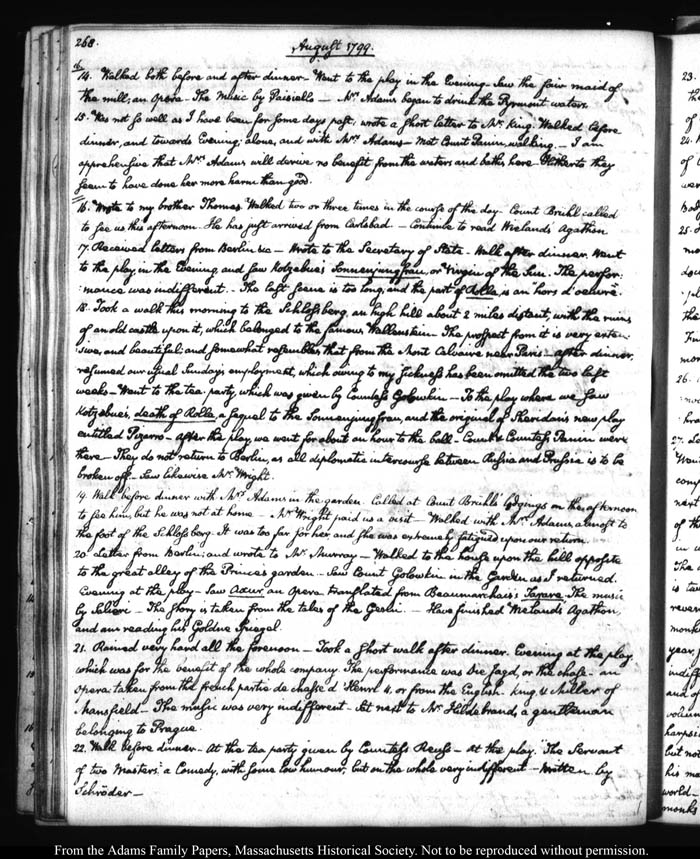 268.
August 1799.
14. Walked both before and after dinner – Went to the play in the Evening – Saw the fair maid of
the mill; an Opera – The Music by Paisiello — Mrs. Adams began to drink the Pyrmont waters.
15. Was not so well as I have been for some days past, wrote a short letter to Mr. King. Walked before
dinner, and towards Evening; alone, and with Mrs. Adams – Met Count Panin, walking. – I am
apprehensive that Mrs. Adams will derive no benefit from the waters and baths here – Hitherto they
seem to have done her more harm than good.
16. Wrote to my brother Thomas. Walked two or three times in the course of the day – Count Brühl called
to see us this afternoon – He has just arrived from Carlsbad. – Continue to read Wielands' Agathon
17. Received letters from Berlin &c – Wrote to the Secretary of State – Walk after dinner. Went
to the play, in the Evening, and saw Kotzebue's Sonnenjungfrau, or Virgin of the Sun – The perfor-
:mance was indifferent. – The last scene is too long, and the part of Rolla, is an "hors d'oeuvre"
18. Took a walk this morning to the Schlossberg, an high hill about 2 miles distant, with the ruins
of an old castle upon it, which belonged to the famous Wallenstein – The prospect from it is very exten-
sive, and beautiful; and somewhat resembles that from the Mont Calvaire near Paris – After dinner,
resumed our usual Sunday's employment, which owing to my sickness has been omitted the two last
weeks – Went to the tea-party, which was given by Countess Golowkin – To the play where we saw
Kotzebue's, death of Rolla, a sequel to the Sonnenjungfrau, and the original of Sheridan's new play
entitled Pizarro – After the play, we went for about an hour to the ball – Count & Countess Panin were
there – They do not return to Berlin, as all diplomatic intercourse between Russia and Prussia is to be
broken off – Saw likewise Mr. Wright.
19. Walk before dinner with Mrs. Adams in the garden. Called at Count Brühl's lodgings in the afternoon
to see him, but he was not at home – Mr. Wright paid us a visit – Walked with Mrs. Adams almost to
the foot of the Schlossberg. It was too far for her, and she was extremely fatigued upon our return.
20. Letter from Berlin; and wrote to Mr. Murray – Walked to the house upon the hill opposite
to the great alley of the Prince's garden – Saw Count Golowkin in the Garden as I returned.
Evening at the play – Saw Axur, an Opera translated from Beaumarchais's Tarare. The music
by Salieri – The story is taken from the tales of the Genii. – Have finished Wieland's Agathon,
and am reading his Goldne Spiegel.
21. Rained very hard all the forenoon – Took a short walk after dinner. Evening at the play,
which was for the benefit of the whole company. The performance was Die Jagd, or the chase – an
Opera taken from the french partie de chasse d'Henri 4, or from the English King & Miller of
Mansfield – The music was very indifferent – Sat next to Mr. Hildebrand, a gentleman
belonging to Prague.
22. Walk before dinner – At the tea party given by Countess Reuss – At the play. The Servant
of two Masters; a Comedy, with some low humour, but on the whole very indifferent – Written by
Schröder –
From the Adams Family Papers, Massachusetts Historical Society. Not to be reproduced without permission.